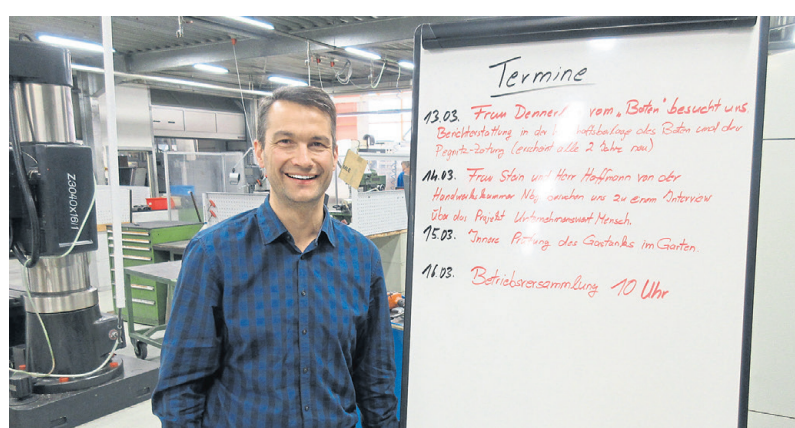 Z3040x16I/1
Termine
13.03. Frau vom „Boten“ besucht uns.
Berichterstattung in der des Boten und der
Pegnitz-Zeitung (erscheint alle 2 Jahre neu)
14.03. Frau Stein und Herr Hoffmann von der
Handwerkskammer uns zu einem Interview
über das Projekt Unternehmenswert Mensch.
15.03. Innere Prüfung des Gastanks im Garten.
16.03. Betriebsversammlung 10 Uhr